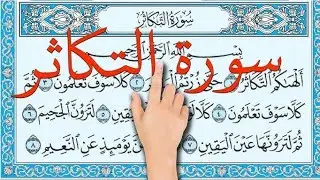 سُورَةُ التَّكَاثُرِ
بِسْمِ اللَّهِ الرَّحْمَٰنِ الرَّحِيمِ
سورة التكاثر
أَلْهَىٰكُمُ التَّكَاثُرُ حَتَّىٰ زُرْتُمُ كَلَّا سَوْفَ تَعْلَمُونَ ٣ ثُمَّ
كَلَّا سَوْفَ تَعْلَمُونَ ٤ الْيَقِينِ ٥ لَتَرَوُنَّ الْجَحِيمَ ٦
ثُمَّ لَتَرَوُنَّهَا عَيْنَ الْيَقِينِ ٧ يَوْمَئِذٍ عَنِ النَّعِيمِ ٨